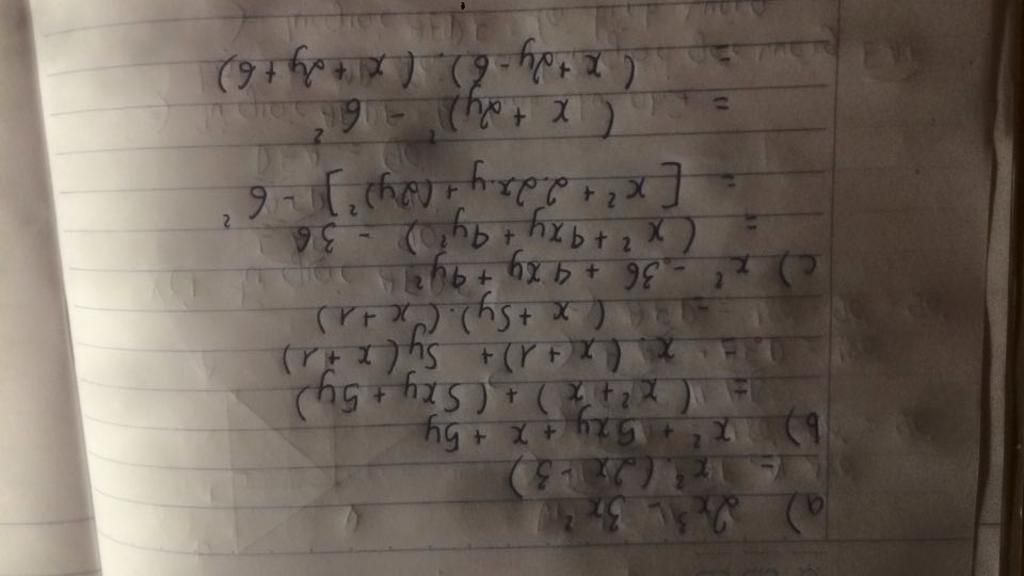 a) 2x³ - 3x²
= x² (2x - 3)
b) x² + 5xy + x + 5y
= (x² + x) + (5xy + 5y)
= x. (x + 1) + 5y (x + 1)
= (x + 5y). (x + 1)
c) x² - 36 + 4xy + 4y²
= (x² + 4xy + 4y²) - 36
= [x² + 2.2x.y + (2y)²] - 6²
= (x + 2y)² - 6²
= (x + 2y - 6). (x + 2y + 6)